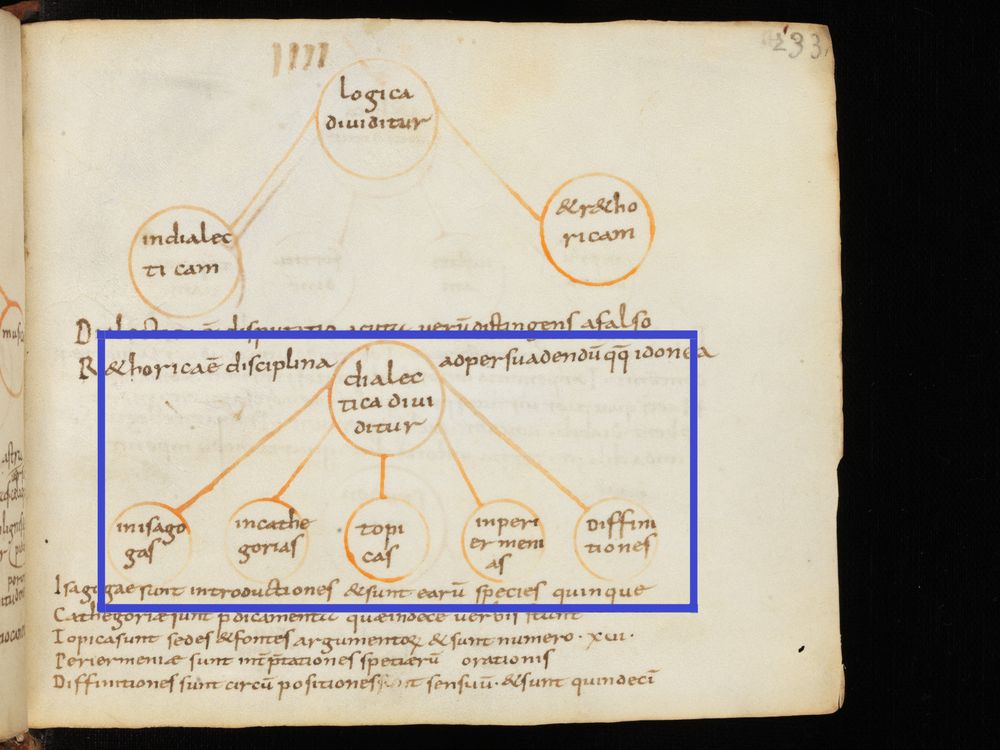 IIII
233
logica
diuiditur
indialec
ti cam
&r&ho
ricam
disputatio uerū distingens afalso
R&horica ē disciplina adpersuadendū q̄q̄ idonea
dialec
tica diui
ditur
inisago
gas
incathe
gorias
topi
cas
inperi
ermeni
as
Diffini
tiones
Isagogae sunt introductiones &sunt earū species quinque
Cathegoriæ sunt p̄dicamenta
Topicasunt sedes &fontes argumentoꝝ &sunt numero · xui ·
Periermeniæ sunt int̄p̄tationes specierū orationis
Diffinitiones sunt circū positiones sensuū · &sunt quindecī